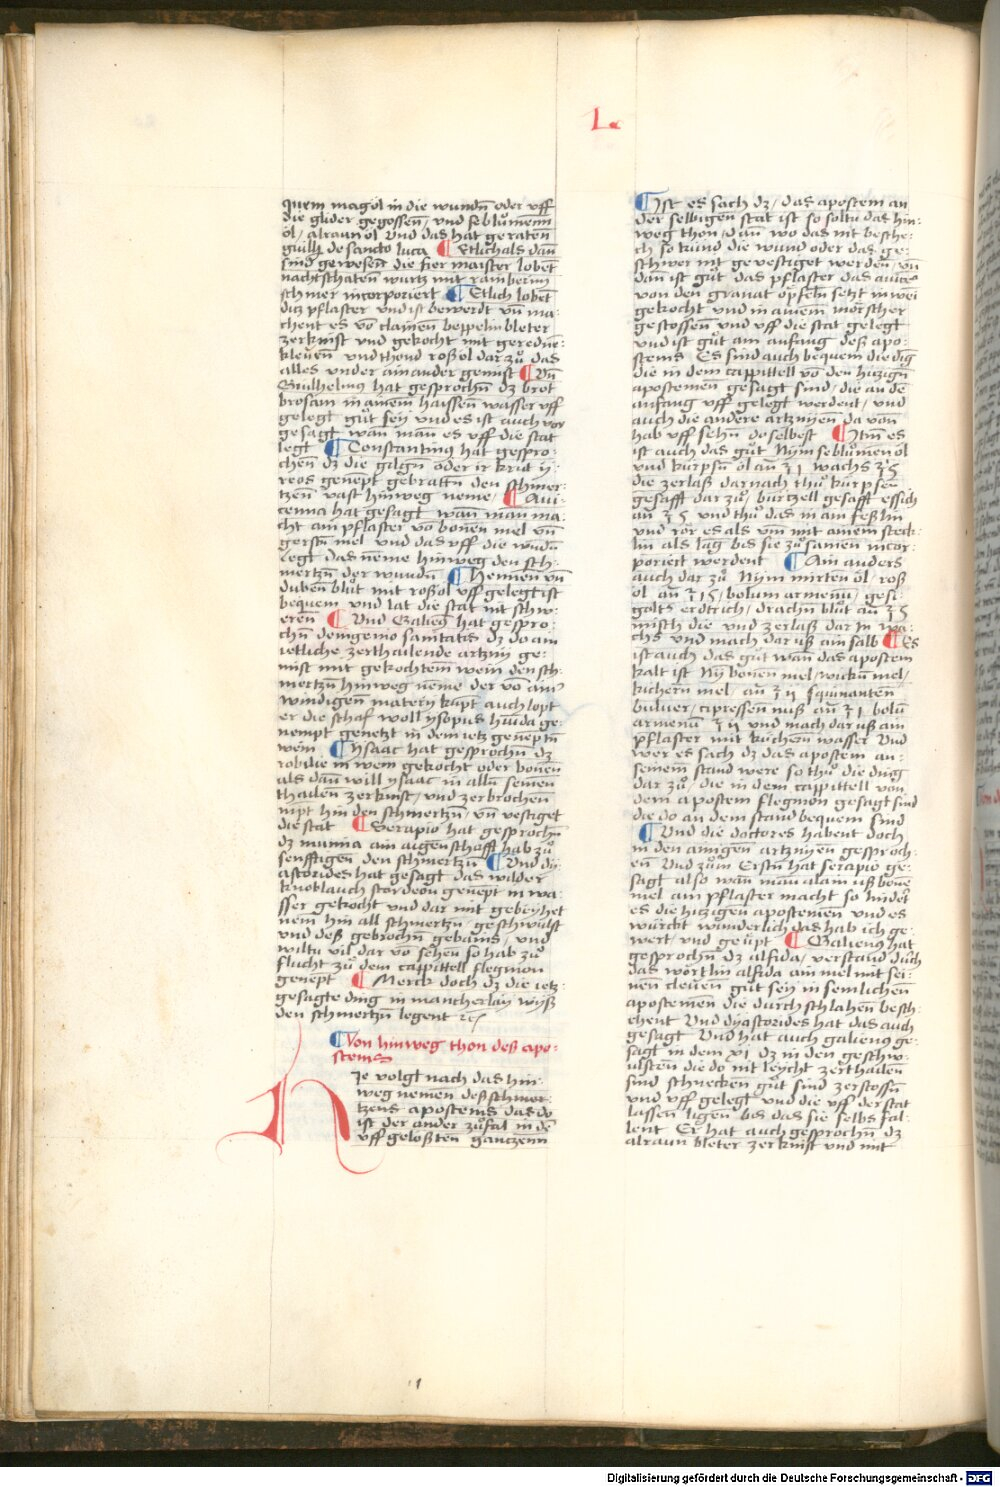 L.
quem mag öl in die wundn̄ oder vff
die glider gegossen̄ / vnd seblůmenn
öl / alraun öl Vnd das hat geraten̄
guilh de sancto luca ¶ Etlich als dan̄
sind gewesen̄ die fier maister loben̄t
nachtschaten̄ wurtz mit rainberim̄
schmer incorporiert ¶ Etlich loben̄t
ditz pflaster vnd ist bewerdt vn̄ ma-
chent es vō clainen beppelin bleter
zerkinst vnd gekocht mit geredne-
kleuen̄ vnd thond roß öl dar zů das
alles vnder ainander gemist ¶ Vn̄
Guilhelmus hat gesprochn̄ dz brot
brosam in ainem haissen̄ wasser vff
gelegt gůt sey vnd es ist auch vor
gesagt wan̄ man̄ es vff die stat
legt ¶ Constantinus hat gespro-
chen̄ dz die gilgn̄ oder ir krut y-
reos genent gebrattn̄ den schmer-
tzen̄ vast hinweg neme / ¶ Aui-
cenna hat gesagt wan̄ man ma-
cht ain pflaster vō bonen mel vn̄
gerstn̄ mel vnd das vff die wūdn̄
legt das nēme hinweg den sch-
mertzn̄ der wundn̄ ¶ Hennen vn̄
duben blůt mit roß öl vff gelegt ist
bequem vnd lat die stat nit schw-
eren̄ ¶ Vnd Galieg hat gespro-
chn̄ de ingenio sanitatis dz do ain
ietliche zerthailende artzny ge-
mist mit gekochtem wein den sch-
mertzn̄ hinweg nēme der vō ain
windigen̄ matery kūpt auch lopt
er die schaf woll ysopus hūida ge-
nempt genetzt in dem ietz genēptn̄
wein ¶ Ysaac hat gesprochn̄ dz
robilie in wein gekocht oder bonen̄
als dan̄ will ysaac in alln̄ seinen
thailen̄ zerkinst / vnd zerbrochen
nīpt hin den schmertzn̄ / vn̄ vestiget
die stat ¶ Serapio hat gesprochn̄
dz mumia ain augenschafft hab zů
senfftigen̄ den schmertzn̄ ¶ Vnd dy-
astorides hat gesagt das wilder
knoblauch stordeon genēpt in wa-
sser gekocht vnd dar mit gebeyhet
nem hin all schmertzn̄ / geschwulst
vnd deß gebrochn̄ gebains / vnd
wiltu vil dar vō sehen̄ so hab zů
flucht zů dem cappittell flegmon
genēpt ¶ Merck doch dz die ietz-
gesagte ding in mancherlay wyß
den schmertzn̄ legent ⁊c̄
¶ Von hinweg thon deß apo-
stems
HJe volgt nach das hin-
weg nemen̄ deß schmer-
tzens apostems das do
ist der ander zůfal in dē
vff gelößten ganczenn
¶ Jst es sach dz / das apostem an
der selbigen̄ stat ist so soltu das hin-
weg thon / dan̄ wo das nit besche-
ch so kund die wund oder das ge-
schwer nit geuestiget werden̄ / vn̄
dan̄ ist gůt das pflaster das auicē
von den granat öpfeln̄ setzt in wei
gekocht vnd in ainem mörscher
gestossen̄ vnd vff die stat gelegt
vnd ist gůt am anfang deß apo-
stems Es sind auch bequem die dīg
die in dem cappittell vō den hizign̄
apostemen̄ gesagt sind / die an dē
anfang vff gelegt werdent / vnd
auch die andere artznyen̄ da von̄
hab vff sehn̄ doselbest ¶ Jtm̄ es
ist auch das gůt Nym seblůmen öl
vnd kürpsn̄ öl an̄ ʒ 1 wachs ʒ 5
die zerlaß darnach thů kürpsen̄
gesafft dar zů / bürtzell gesafft essich
an̄ ʒ 5 vnd thů das in ain feßlin
vnd rör es als vm̄ mit ainem steck-
lin als lāg bis sie zůsamen̄ incor-
poriert werdent ¶ Ain anders
auch dar zů Nym mirten öl / roß
öl an̄ ʒ 15 / bolum armenū / gesi-
golts erdtrich / drachn̄ blůt an̄ ʒ 5
misch die vnd zerlaß dar in wa-
chs vnd mach dar uß ain salb ¶ Es
ist auch das gůt wan̄ das apostem
kalt ist Nȳ bonen̄ mel / wickn̄ mel /
kichern mel / an̄ ʒ ij squinanten̄
buluer / cipressen̄ nuß an̄ ʒ 1 bolū
armenū ʒ ij vnd mach dar uß ain
pflaster mit kůchen̄ wasser Vnd
wer es sach dz das apostem an-
seinem̄ stand were so thů die ding
dar zů / die in dem cappittell von
dem apostem flegmon̄ gesagt sind
die do an dem stand bequem sind
¶ Vnd die doctores habent doch
in den ainigen̄ artznyen̄ gesproch-
en̄ Vnd zům Erstn̄ hat serapio ge-
sagt also wan̄ man̄ alain uß bonē
mel ain pflaster macht so hindet
es die hizigen apostemen̄ vnd es
würckt wunderlich das hab ich ge-
wert vnd geüpt ¶ Galienus hat
gesprochn̄ dz alfida / verstand důch
das wortlin alfida ain mel mit sei-
nen cleuen̄ gůt sey in semlichen̄
apostemen̄ die durch schlahen̄ besch-
chent Vnd dyastorides hat das auch
gesagt Vnd hat auch galienus ge-
sagt in dem xi dz in den geschw-
ulsten̄ die do nit leycht zerthailen̄
sind schnecken̄ gůt sind zerstossn̄
vnd vff gelegt vnd die vff der stat
lassen̄ ligen̄ bis das sie selbs fal-
lent Er hat auch gesprochn̄ dz
alraun bleter zerkinst vnd mit
Digitalisierung gefördert durch die Deutsche Forschungsgemeinschaft - DFG